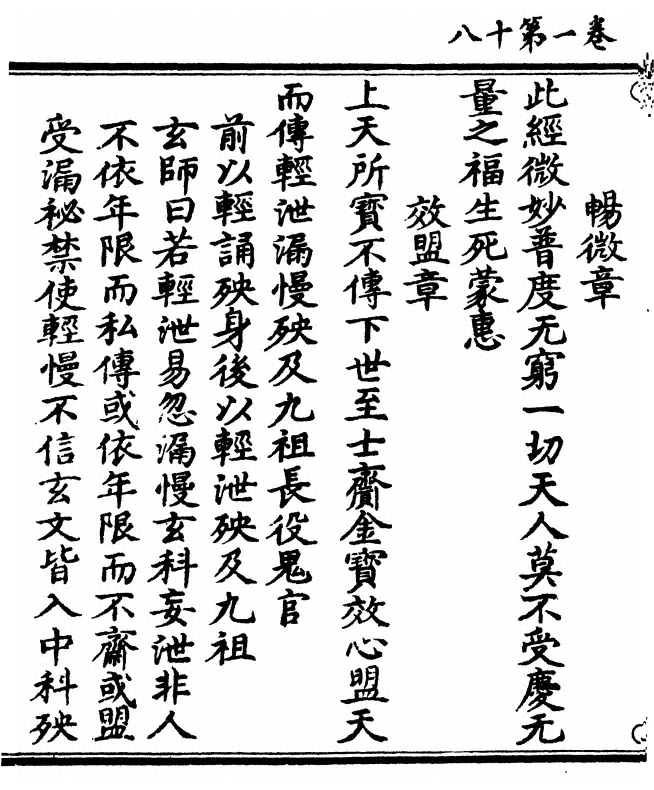 八十第一卷
暢微章
此經微妙普度无窮一切天人莫不受慶无
量之福生死蒙惠
效盟章
上天所寶不傳下世至士齎金寶效心盟天
而傳輕泄漏慢殃及九祖長役鬼官
前以輕誦殃身後以輕泄殃及九祖
玄師曰若輕泄易忽漏慢玄科妄泄非人
不依年限而私傳或依年限而不齋或盟
受漏祕禁使輕慢不信玄文皆入中科殃